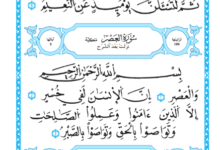 ثُمَّ لَتُسْـَٔلُنَّ يَوْمَئِذٍ عَنِ ٱلنَّعِيمِ
سُورَةُ العَصْرِ مَكِّيَّة
نزلت بعد الشرح
بِسْمِ ٱللَّهِ ٱلرَّحْمَٰنِ ٱلرَّحِيمِ
وَٱلْعَصْرِ إِنَّ ٱلْإِنسَٰنَ لَفِى خُسْرٍ
إِلَّا ٱلَّذِينَ ءَامَنُوا۟ وَعَمِلُوا۟ ٱلصَّٰلِحَٰتِ
وَتَوَاصَوْا۟ بِٱلْحَقِّ وَتَوَاصَوْا۟ بِٱلصَّبْرِ